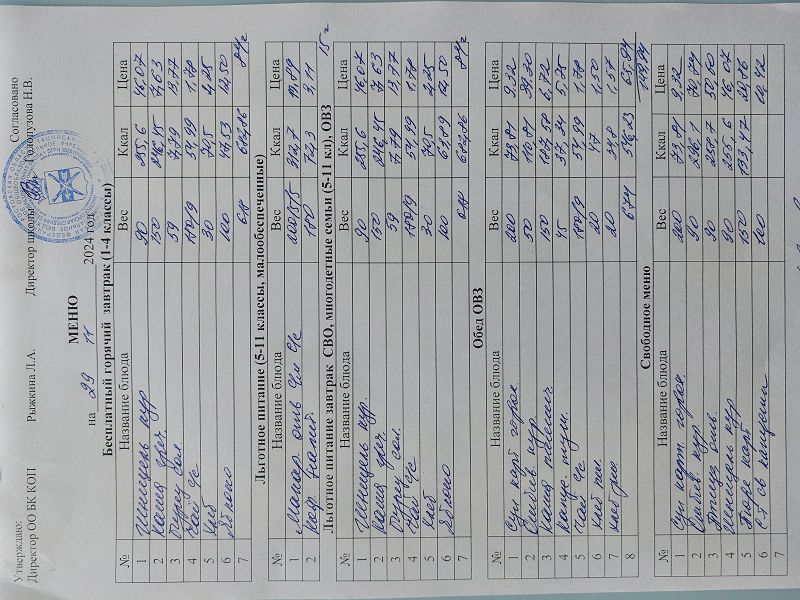 Утверждаю:
Директор ОО БК КОП Рыжкина Л.А. Директор школы Голопузова Н.В.
Согласовано
МЕНЮ
на 29 11 2024 год
Бесплатный горячий завтрак (1-4 классы)
№ Название блюда Вес Ккал Цена
1 Шницель кур 90 255,6 46.07
2 Каша греч 150 246.45 7,63
3 Огурец сол. 59 7,79 13,77
4 Чай с/с 180/9 54,99 1.78
5 Хлеб 30 70,5 2,25
6 Яблоко 100 47,53 12,50
7 84г
Льготное питание (5-11 классы, малообеспеченные)
№ Название блюда Вес Ккал Цена
1 Макар отв с/с 200/5/5 312,7
2 Коф. напит. 180 72,3 3,11
15 г
Льготное питание завтрак СВО, многодетные семьи (5-11 кл), ОВЗ
№ Название блюда Вес Ккал Цена
1 Шницель кур. 90 255,6 46.07
2 Каша греч. 150 246,45 7,63
3 Огурец сол. 59 7,79 13,77
4 Чай с/с 180/9 54,99 1.78
5 Хлеб 30 70,5 2,25
6 Яблоко 100 12,50
7 84г
Обед ОВЗ
№ Название блюда Вес Ккал Цена
1 Суп карт горох. 200 73,81 9.32
2 кур. 50 110.81
3 Каша 150 6,72
4 Капус туш. 45 37,34 5.78
5 Чай с/с 180/9 54,99 1.78
6 Хлеб пш. 20 47 1,50
7 Хлеб рж 20 34.8 1,57
8 674 546,23
Свободное меню
№ Название блюда
1 Суп карт. горох. 200 73,81 9.32
2 кур 90
3 Птица отв. 90 50,10
4 Шницель кур 90 255.6 46,07
5 Пюре карт 150 133,47
6 С-т св капусты 100
7